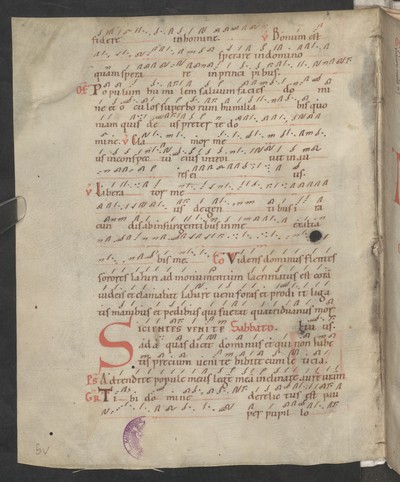 fidere in homine. V Bonum est
sperare in domino
quam spera re in princi pibus.
OF Populum humi lem saluum facies do mi
ne et o culos superbo rum humilia bis quo
niam quis de us preter te do
mine. V Cla mor me
us in conspec tu ei us introi uit in au
res ei us.
V Libera tor me
us de gen ti bus i ra
cun dis ab insurgentibus in me exalta
bis me. Co Videns dominus flentes
sorores lazari ad monumentum lacrimatus est coram
iudeis et clamabat lazare ueni foras et prodi it liga
tis manibus et pedibus qui fuerat quatriduanus mor
SICIENTES VENITE Sabbato. tuus.
ad a quas dicit dominus et qui non habe
tis precium ueni te bibite cum le ticia.
Ps Adtendite popule meus lege mea inclinate aurem
GR Ti bi do mine derelic tus est pau
per pupil lo